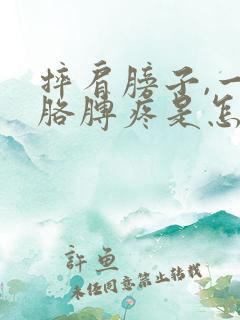 摔肩膀子,一
胳膊疼是怎
許魚
未经同意禁止转载